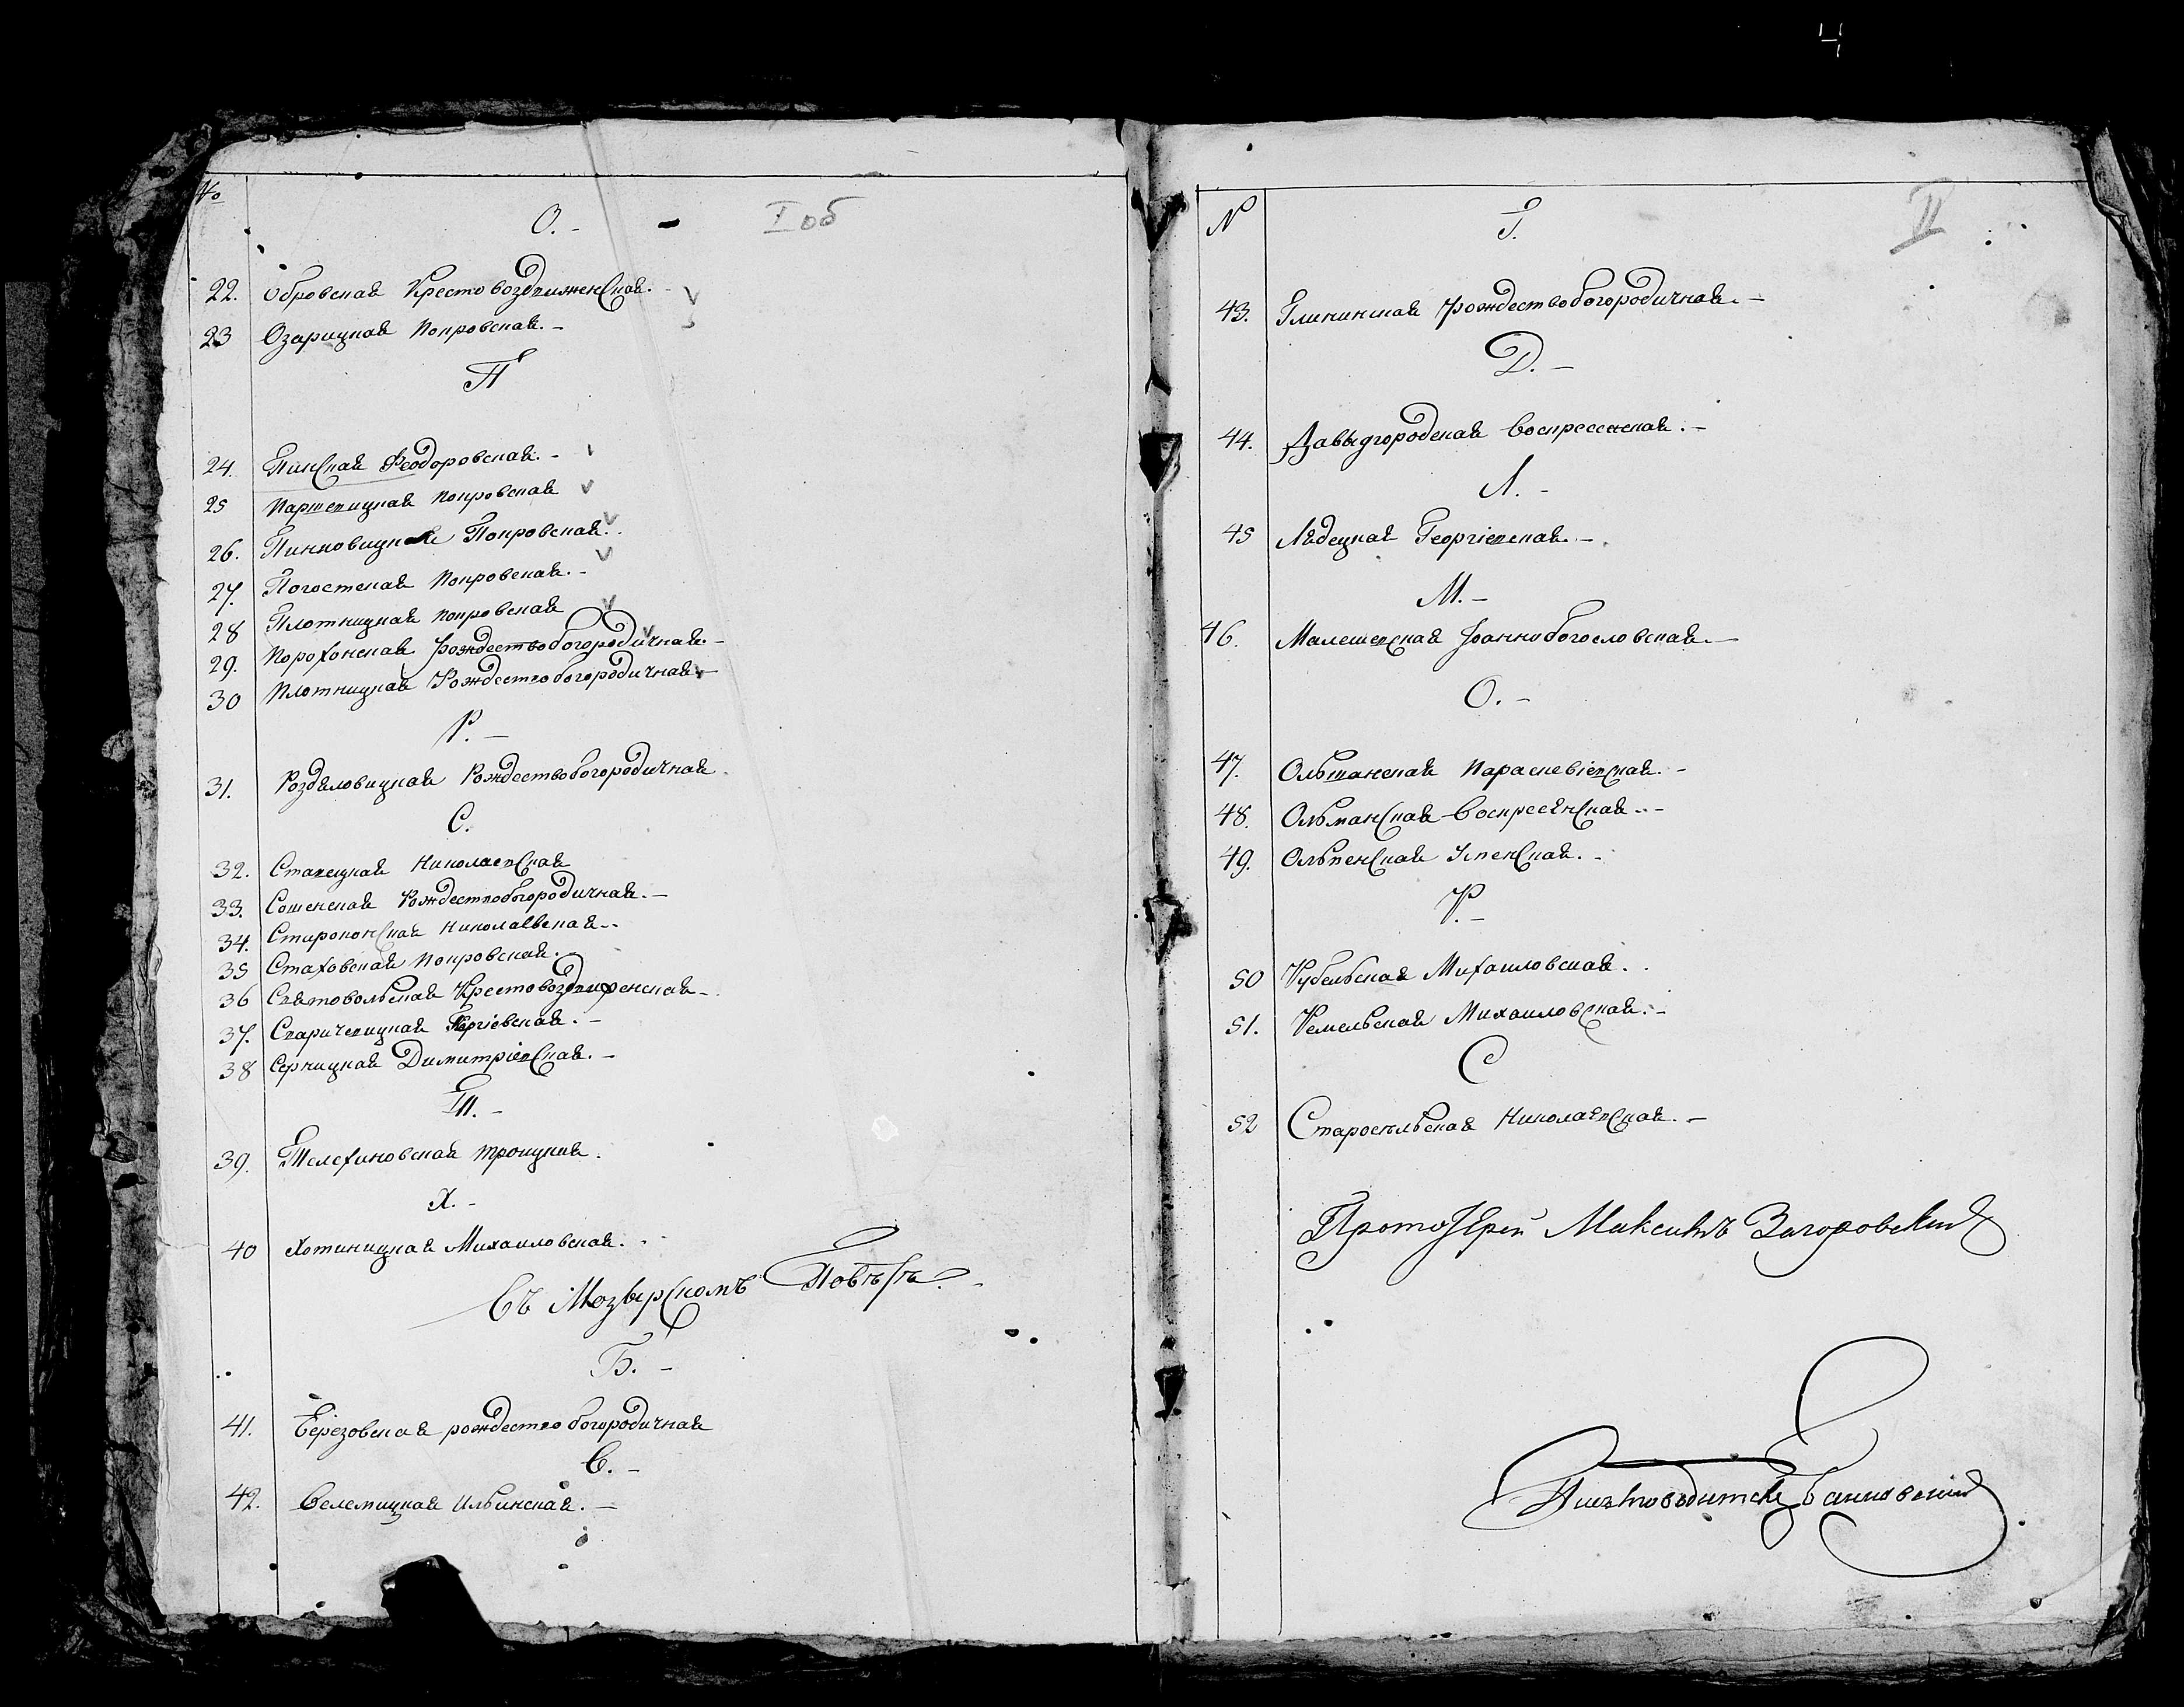 4
№
О. -
I об
22. Обровская Крестовоздвиженская.
23 Озарицкая Покровская. -
П
24. Пинская Феодоровская. -
25 Паршевицкая Покровская
26. Пинковицкая Покровская.
27. Погостская Покровская. -
28 Плотницкая Покровская
29. Порохонская Рождествобогородичная. -
30 Плотницкая Рождествобогородичная. -
Р. -
31. Роздяловицкая Рождествобогородичная.
С.
32. Ставецкая Николаевская
33. Сошенская Рождествобогородичная. -
34. Староконская Николаевская..
35 Стаховская Покровская.
36 Святовольская Крестовоздвиженская -
37. Спаричевицкая Георгіевская. -
38 Серницкая Димитріевская. -
Т. -
39. Телехановская Троицкая.
Х. -
40 Хотиницкая Михаиловская.
Въ Мозырскомъ Повѣтѣ. -
Б. -
41. Березовская рождество богородичная
В. -
42. Велемицкая Ильинская. -
N
Г.
II
43. Глининская Рождествобогородичная. -
Д. -
44. Давыдгородская Воскресенская. -
Л. -
45 Лядецкая Георгіевская. -
М. -
46. Малешевская Іоаннобогословская. -
О. -
47. Ольшанская Параскевіевская. -
48. Ольманская Воскресенская. -
49. Ольпенская Успенская. -
Р. -
50 Рубельская Михаиловская.
51. Ремельская Михаиловская. -
С
52 Старосельская Николаевская. -
ПротоІерей Максимъ Загоровский